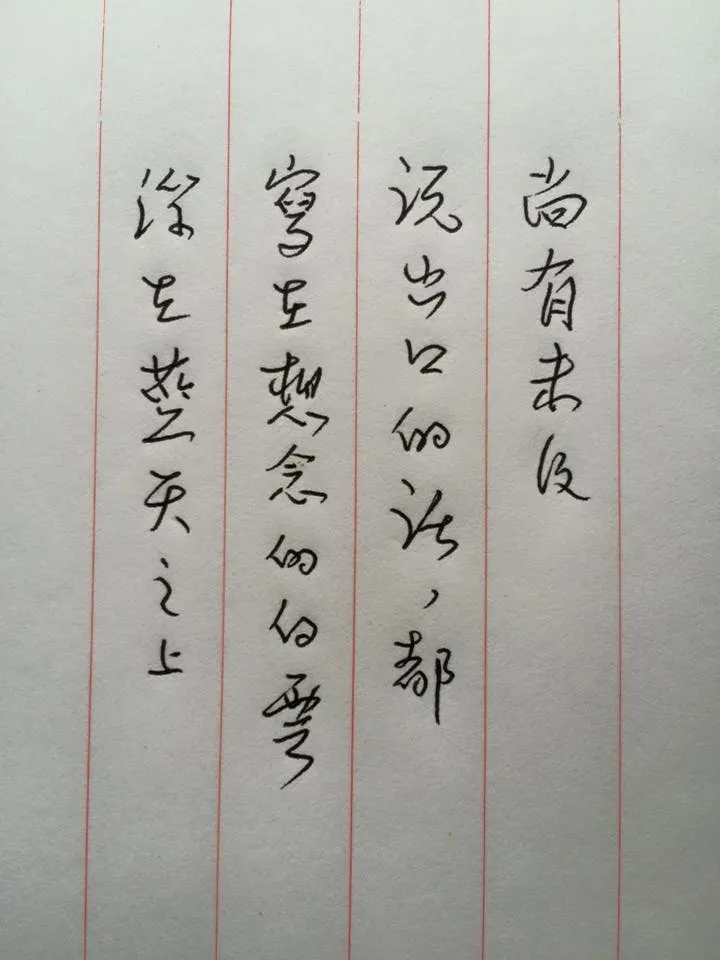 尚有未及
说出口的话，都
寫在想念的白雲
深在蓝天之上